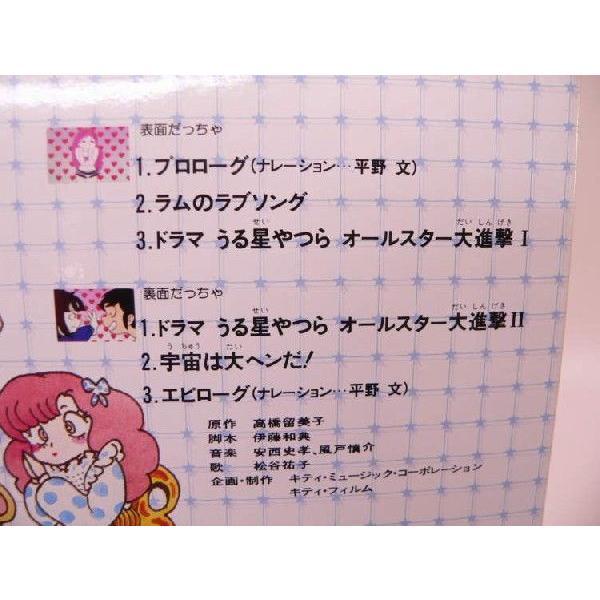 表面だっちゃ
1.プロローグ(ナレーション…平野 文)
2.ラムのラブソング
せい だい しん げき
3.ドラマ うる星やつら オールスター大進撃 I
裏面だっちゃ
せい だい しん げき
1.ドラマ うる星やつら オールスター大進撃 II
う ちゅう たい
2.宇宙は大ヘンだ!
3.エピローグ(ナレーション…平野 文)
原作 高橋留美子
脚本 伊藤和典
音楽 安西史孝、風戸慎介
歌 松谷祐子
企画・制作 キティ・ミュージック・コーポレーション
キティ・フィルム